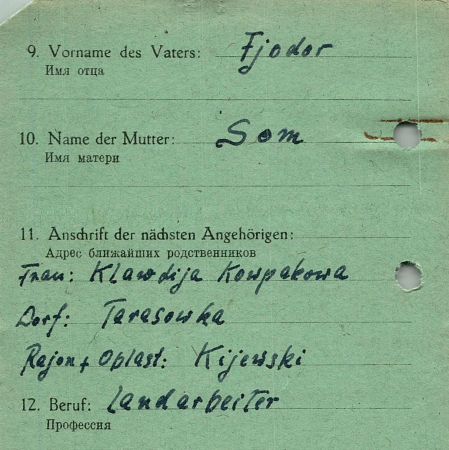 9. Vorname des Vaters: Fjodor
Имя отца
10. Name der Mutter: Som
Имя матери
11. Anschrift der nächsten Angehörigen:
Адрес ближайших родственников
Frau: Klawdija Kowpakowa
Dorf: Tarasowka
Rajon + Oplast: Kijewski
12. Beruf: Landarbeiter
Профессия